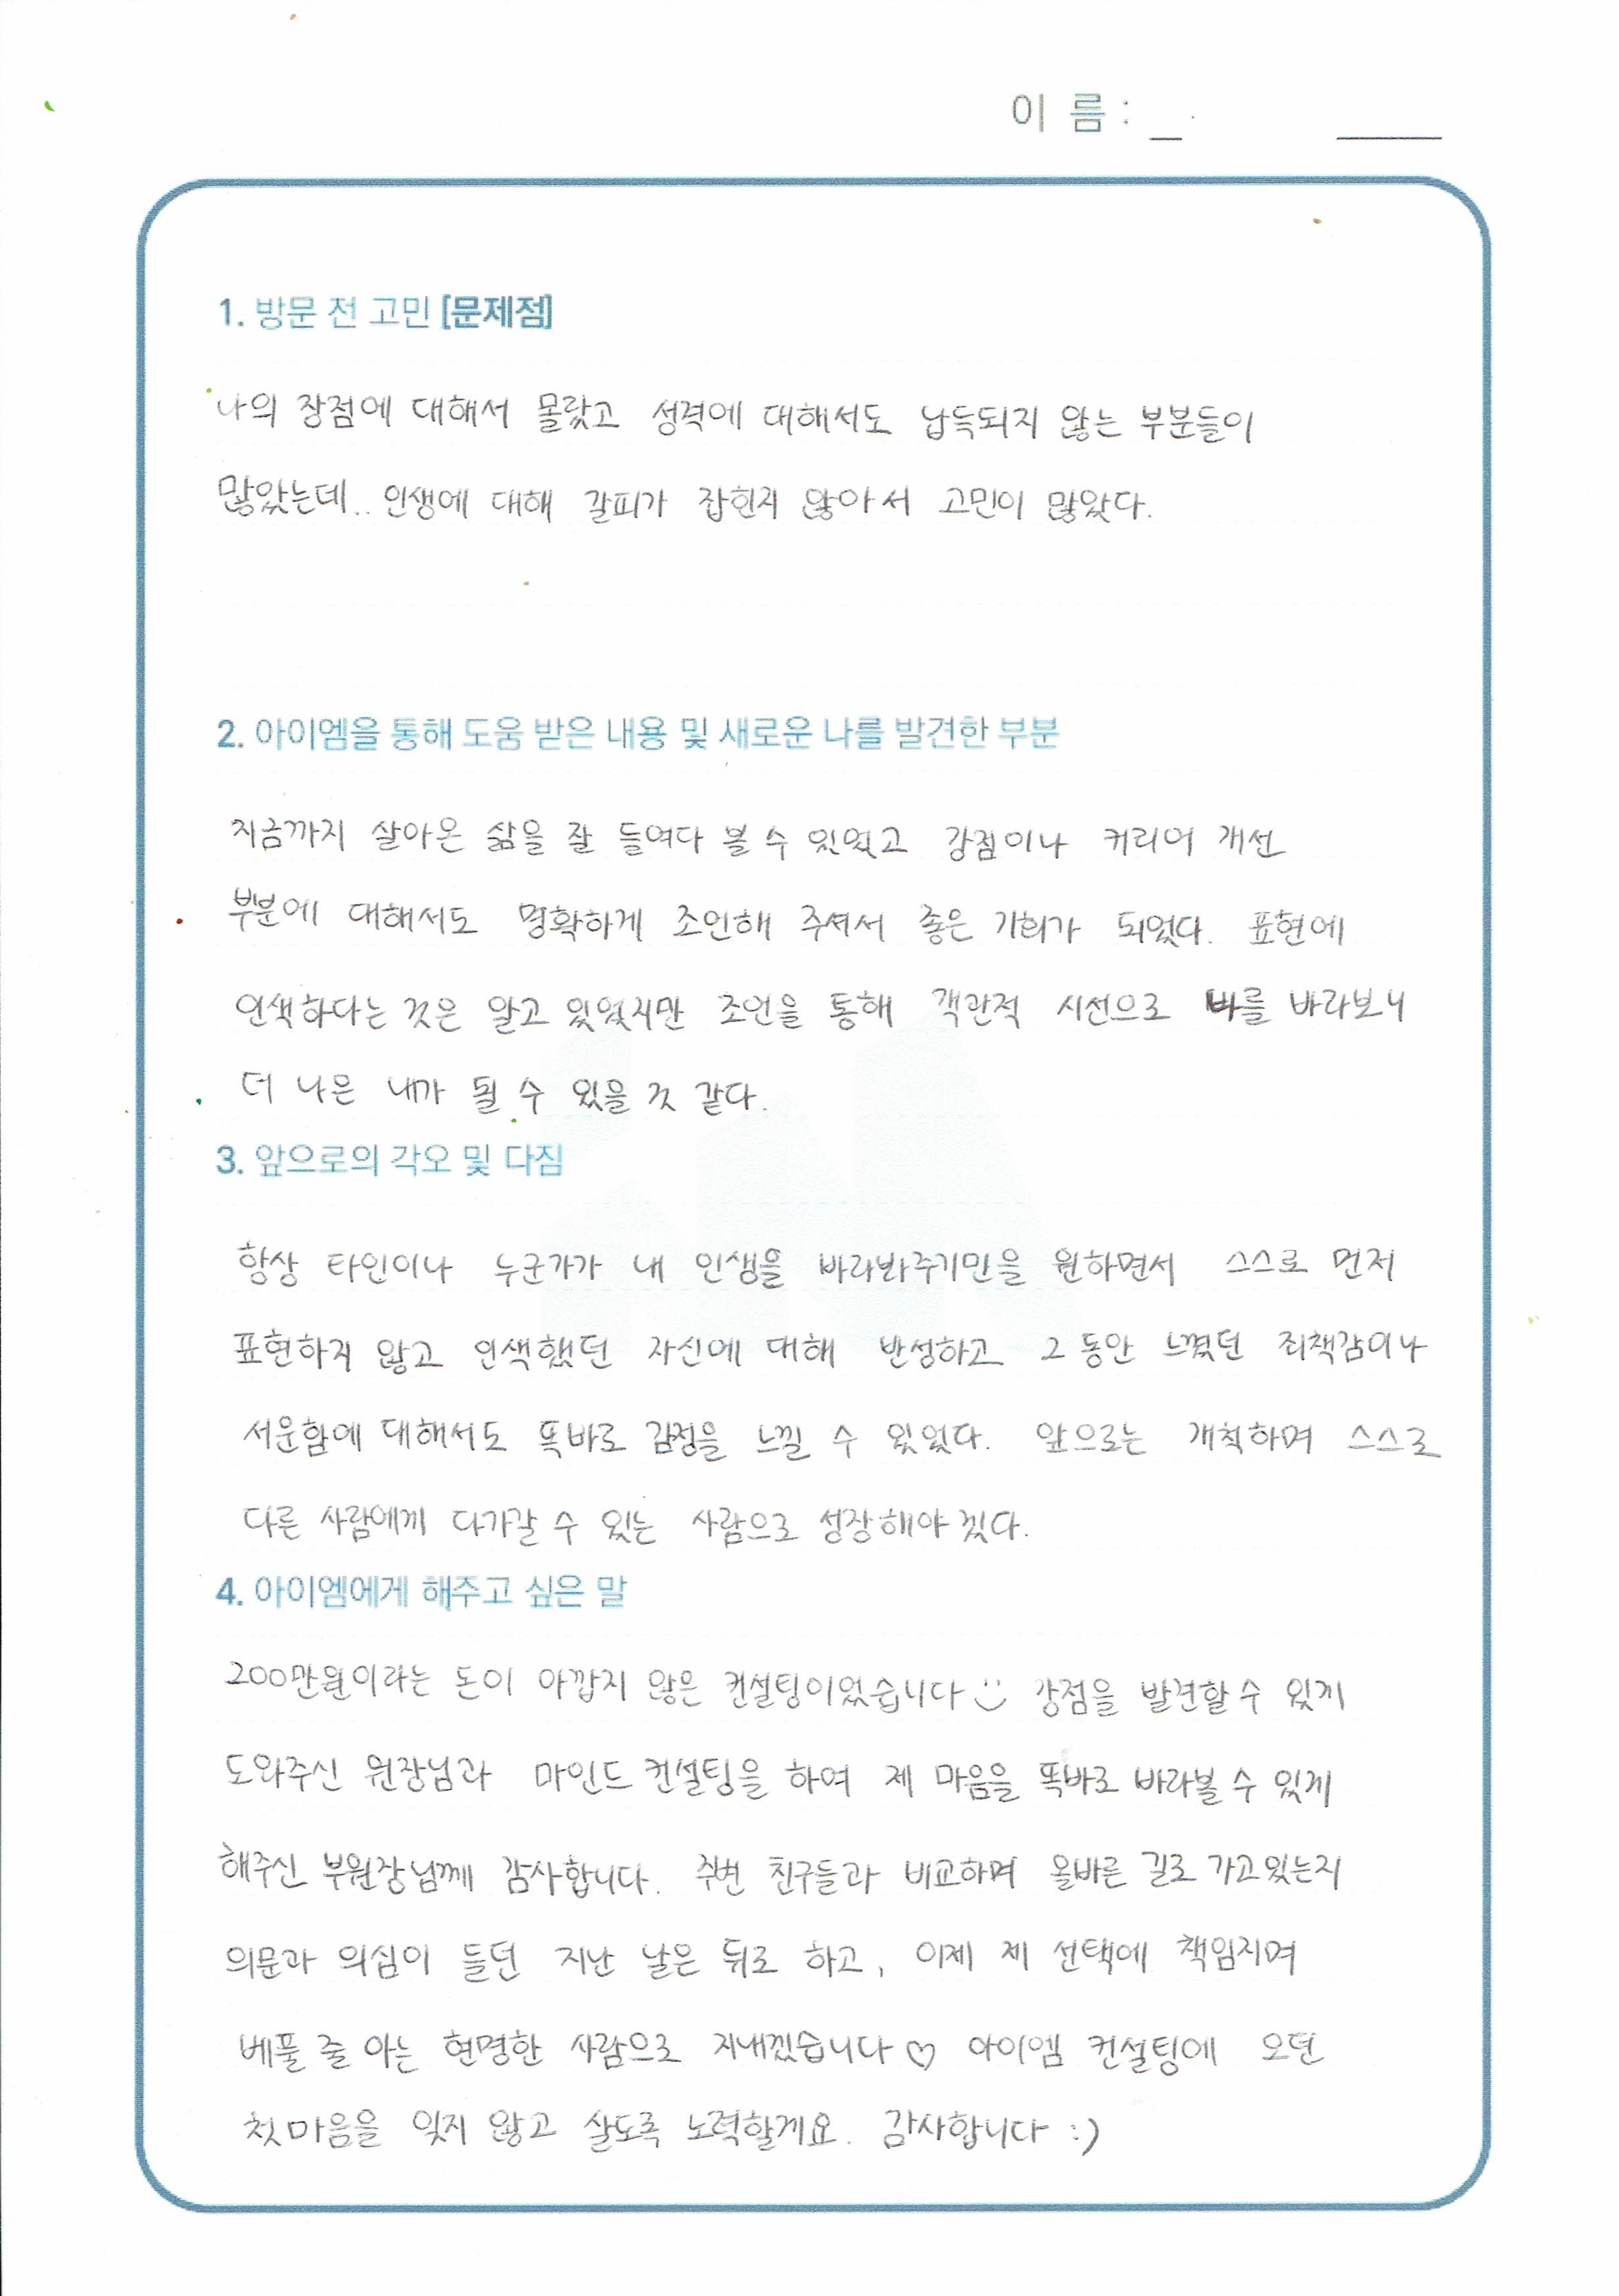 이 름 :
1. 방문 전 고민 [문제점]
나의 장점에 대해서 몰랐고 성격에 대해서도 납득되지 않는 부분들이
많았는데.. 인생에 대해 갈피가 잡히지 않아서 고민이 많았다.
2. 아이엠을 통해 도움 받은 내용 및 새로운 나를 발견한 부분
지금까지 살아온 삶을 잘 들여다 볼 수 있었고 강점이나 커리어 개선
부분에 대해서도 명확하게 조언해 주셔서 좋은 기회가 되었다. 표현에
인색하다는 것은 알고 있었지만 조언을 통해 객관적 시선으로 나를 바라보니
더 나은 내가 될 수 있을 것 같다.
3. 앞으로의 각오 및 다짐
항상 타인이나 누군가가 내 인생을 바라봐주기만을 원하면서 스스로 먼저
표현하지 않고 인색했던 자신에 대해 반성하고 그동안 느꼈던 죄책감이나
서운함에 대해서도 똑바로 감정을 느낄 수 있었다. 앞으로는 개척하며 스스로
다른 사람에게 다가갈 수 있는 사람으로 성장해야겠다.
4. 아이엠에게 해주고 싶은 말
200만원이라는 돈이 아깝지 않은 컨설팅이었습니다 강점을 발견할 수 있게
도와주신 원장님과 마인드 컨설팅을 하여 제 마음을 똑바로 바라볼 수 있게
해주신 부원장님께 감사합니다. 주변 친구들과 비교하며 올바른 길로 가고있는지
의문과 의심이 들던 지난 날은 뒤로 하고, 이제 제 선택에 책임지며
베풀 줄 아는 현명한 사람으로 지내겠습니다♡ 아이엠 컨설팅에 오던
첫마음을 잊지 않고 살도록 노력할게요. 감사합니다 :)